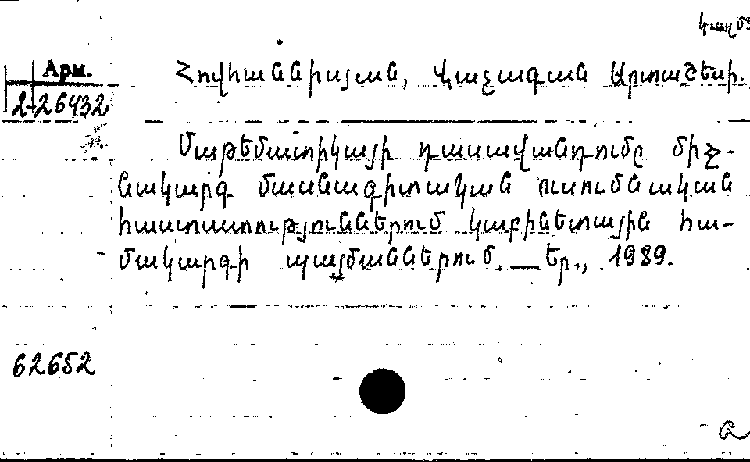 Арм.
2-26432
Հովհաննիսյան, Վաչագան Արտաշեսի.
Մաթեմատիկայի դասավանդումը միջ-
նակարգ մասնագիտական ուսումնական
հաստատություններում կաբինետային հա-
մակարգի պայմաններում. — Եր., 1989.
62652